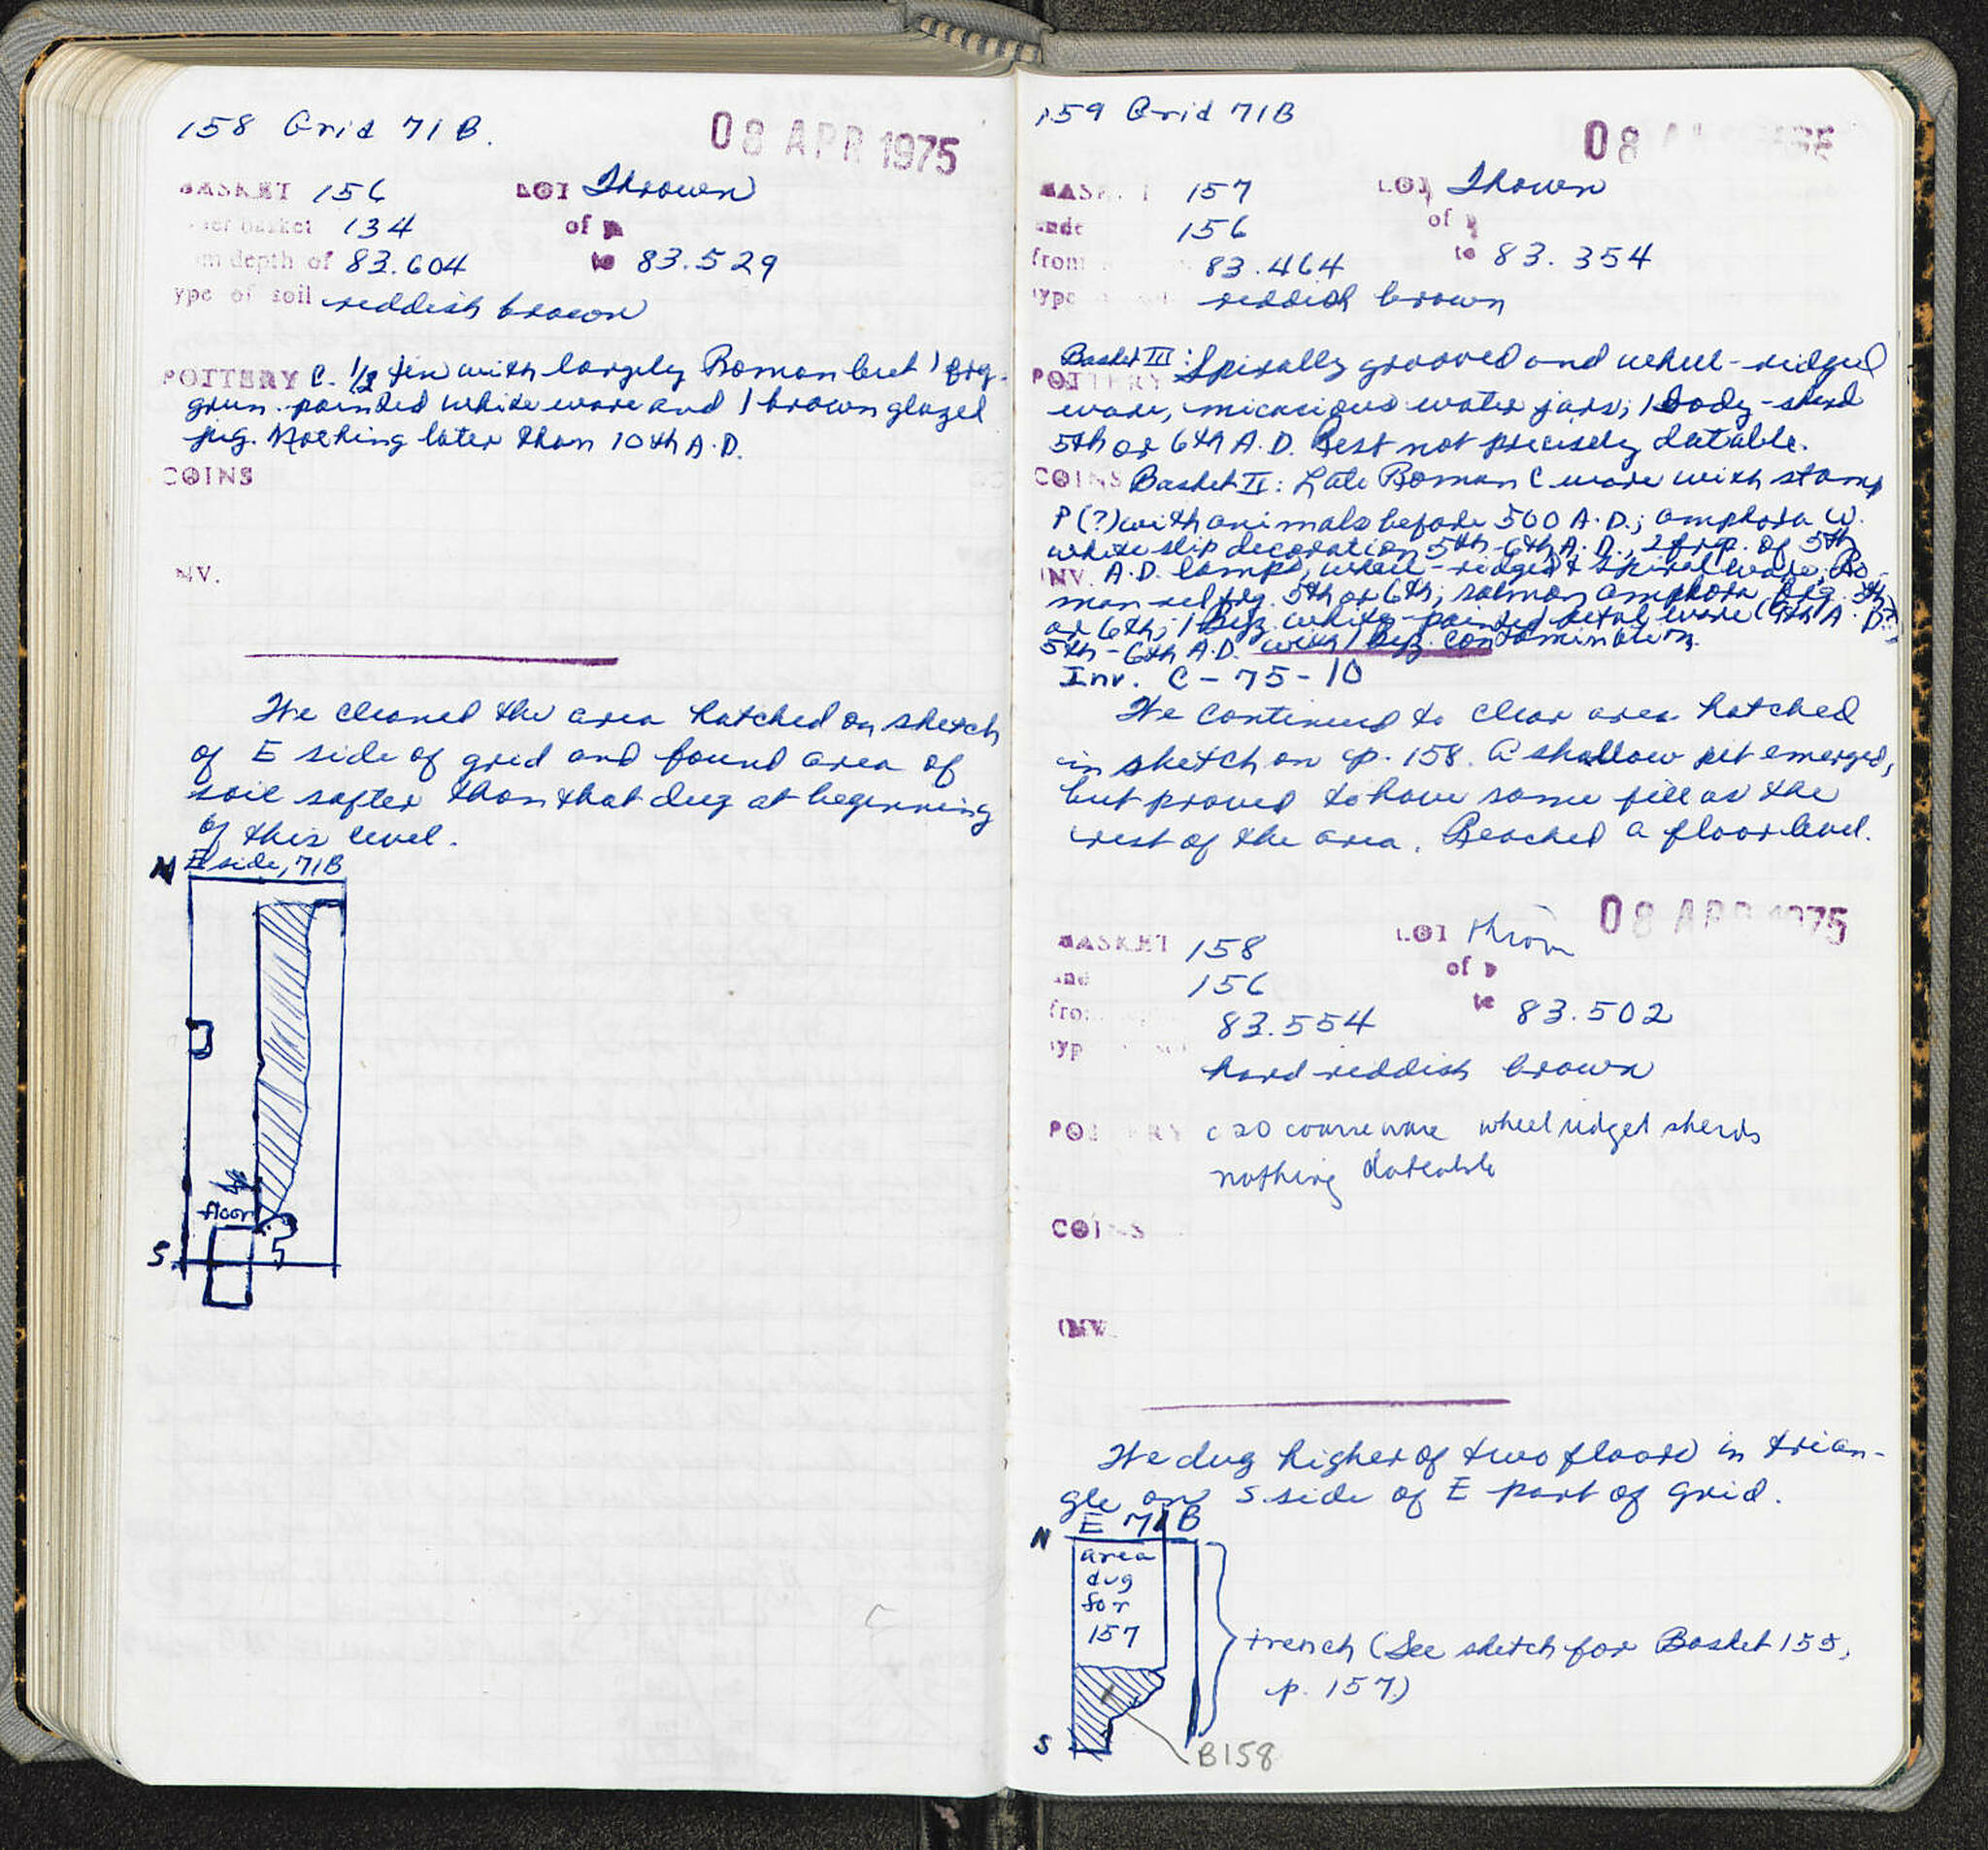 158 Grid 71B.
08 APR 1975
BASKET 156 LOT Thrown
basket 134 of p
depth of 83.604 to 83.529
ype of soil reddish brown
POTTERY c. 1/2 tin with largely Roman but 1 frg.
painted white ware and 1 brown glazed
frg. Nothing later than 10th A.D.
COINS
NV.
We cleaned the area hatched on sketch
of E side of grid and found area of
soil softer than that dug at beginning
of this level.
N E side, 71B
floor
S
159 Grid 71B
08
BASK T 157 LOT Thrown
unde 156 of p
from 83.464 to 83.354
type reddish brown
Basket III: Spirally grooved and wheel-ridged
POTTERY ware, micacious water jars; 1 body-sherd
5th or 6th A.D. Rest not precisely datable.
COINS Basket II: Late Roman C ware with stamp
P(?) with animals before 500 A.D.; amphora w.
white slip decoration 5th-6th A.D., 2 frg. of 5th
INV. A.D. lamps, wheel-ridged & spiral ware, Ro-
man red frg. 5th or 6th; salmon amphora frg. 5th
or 6th; 1 Byz. white-painted ware (9th A.D.?)
5th-6th A.D. with 1 Byz. contamination.
Inv. C-75-10
We continued to clear area hatched
in sketch on p. 158. A shallow pit emerged,
but proved to have same fill as the
rest of the area. Reached a floor level.
08 APR 1975
BASKET 158 LOT thrown
und 156 of p
from 83.554 to 83.502
typ hard reddish brown
POTTERY c 20 coarse ware wheel ridged sherds
nothing dateable
COINS
INV.
We dug higher of two floors in trian-
gle on S side of E part of grid.
E 71B
N
area
dug
for
157
trench (See sketch for Basket 155,
p. 157)
S
B158